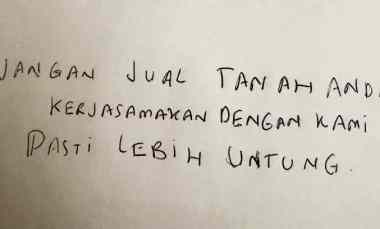 JANGAN JUAL TANAH ANDA
KERJASAMAKAN DENGAN KAMI
PASTI LEBIH UNTUNG.